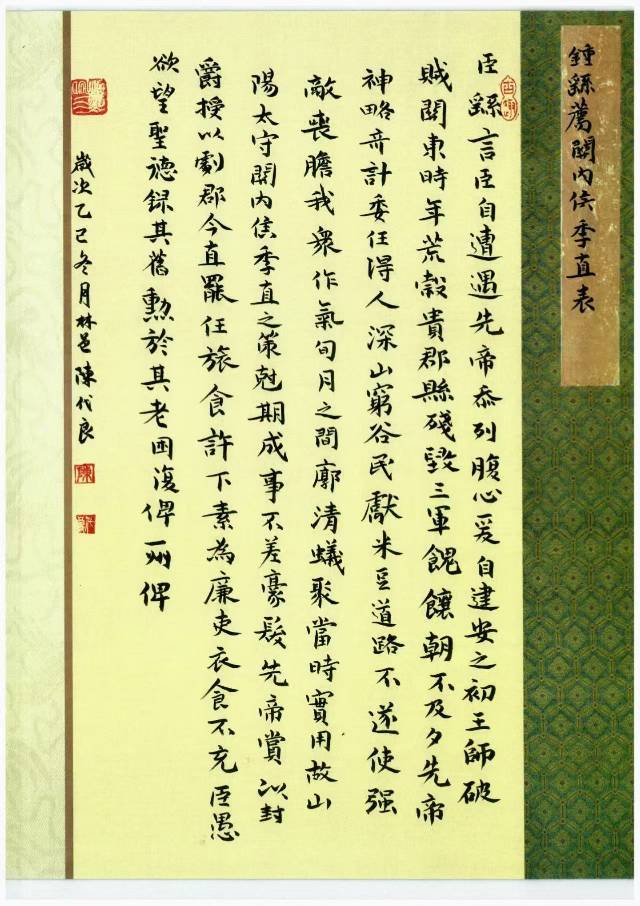 鍾繇薦關內侯季直表
臣繇言臣自遭遇先帝忝列腹心爰自建安之初王師破
賊關東時年荒穀貴郡縣殘毀三軍餽饟朝不及夕先帝
神略奇計委任得人深山窮谷民獻米豆道路不遂使强
敵喪膽我衆作氣旬月之間廓清蟻聚當時實用故山
陽太守關內侯季直之策尅期成事不差豪髮先帝賞以封
爵授以劇郡今直罷任旅食許下素為廉吏衣食不充臣愚
欲望聖德録其舊勳於其老困復俾一州俾
歲次乙巳冬月林邑陳代良
陳